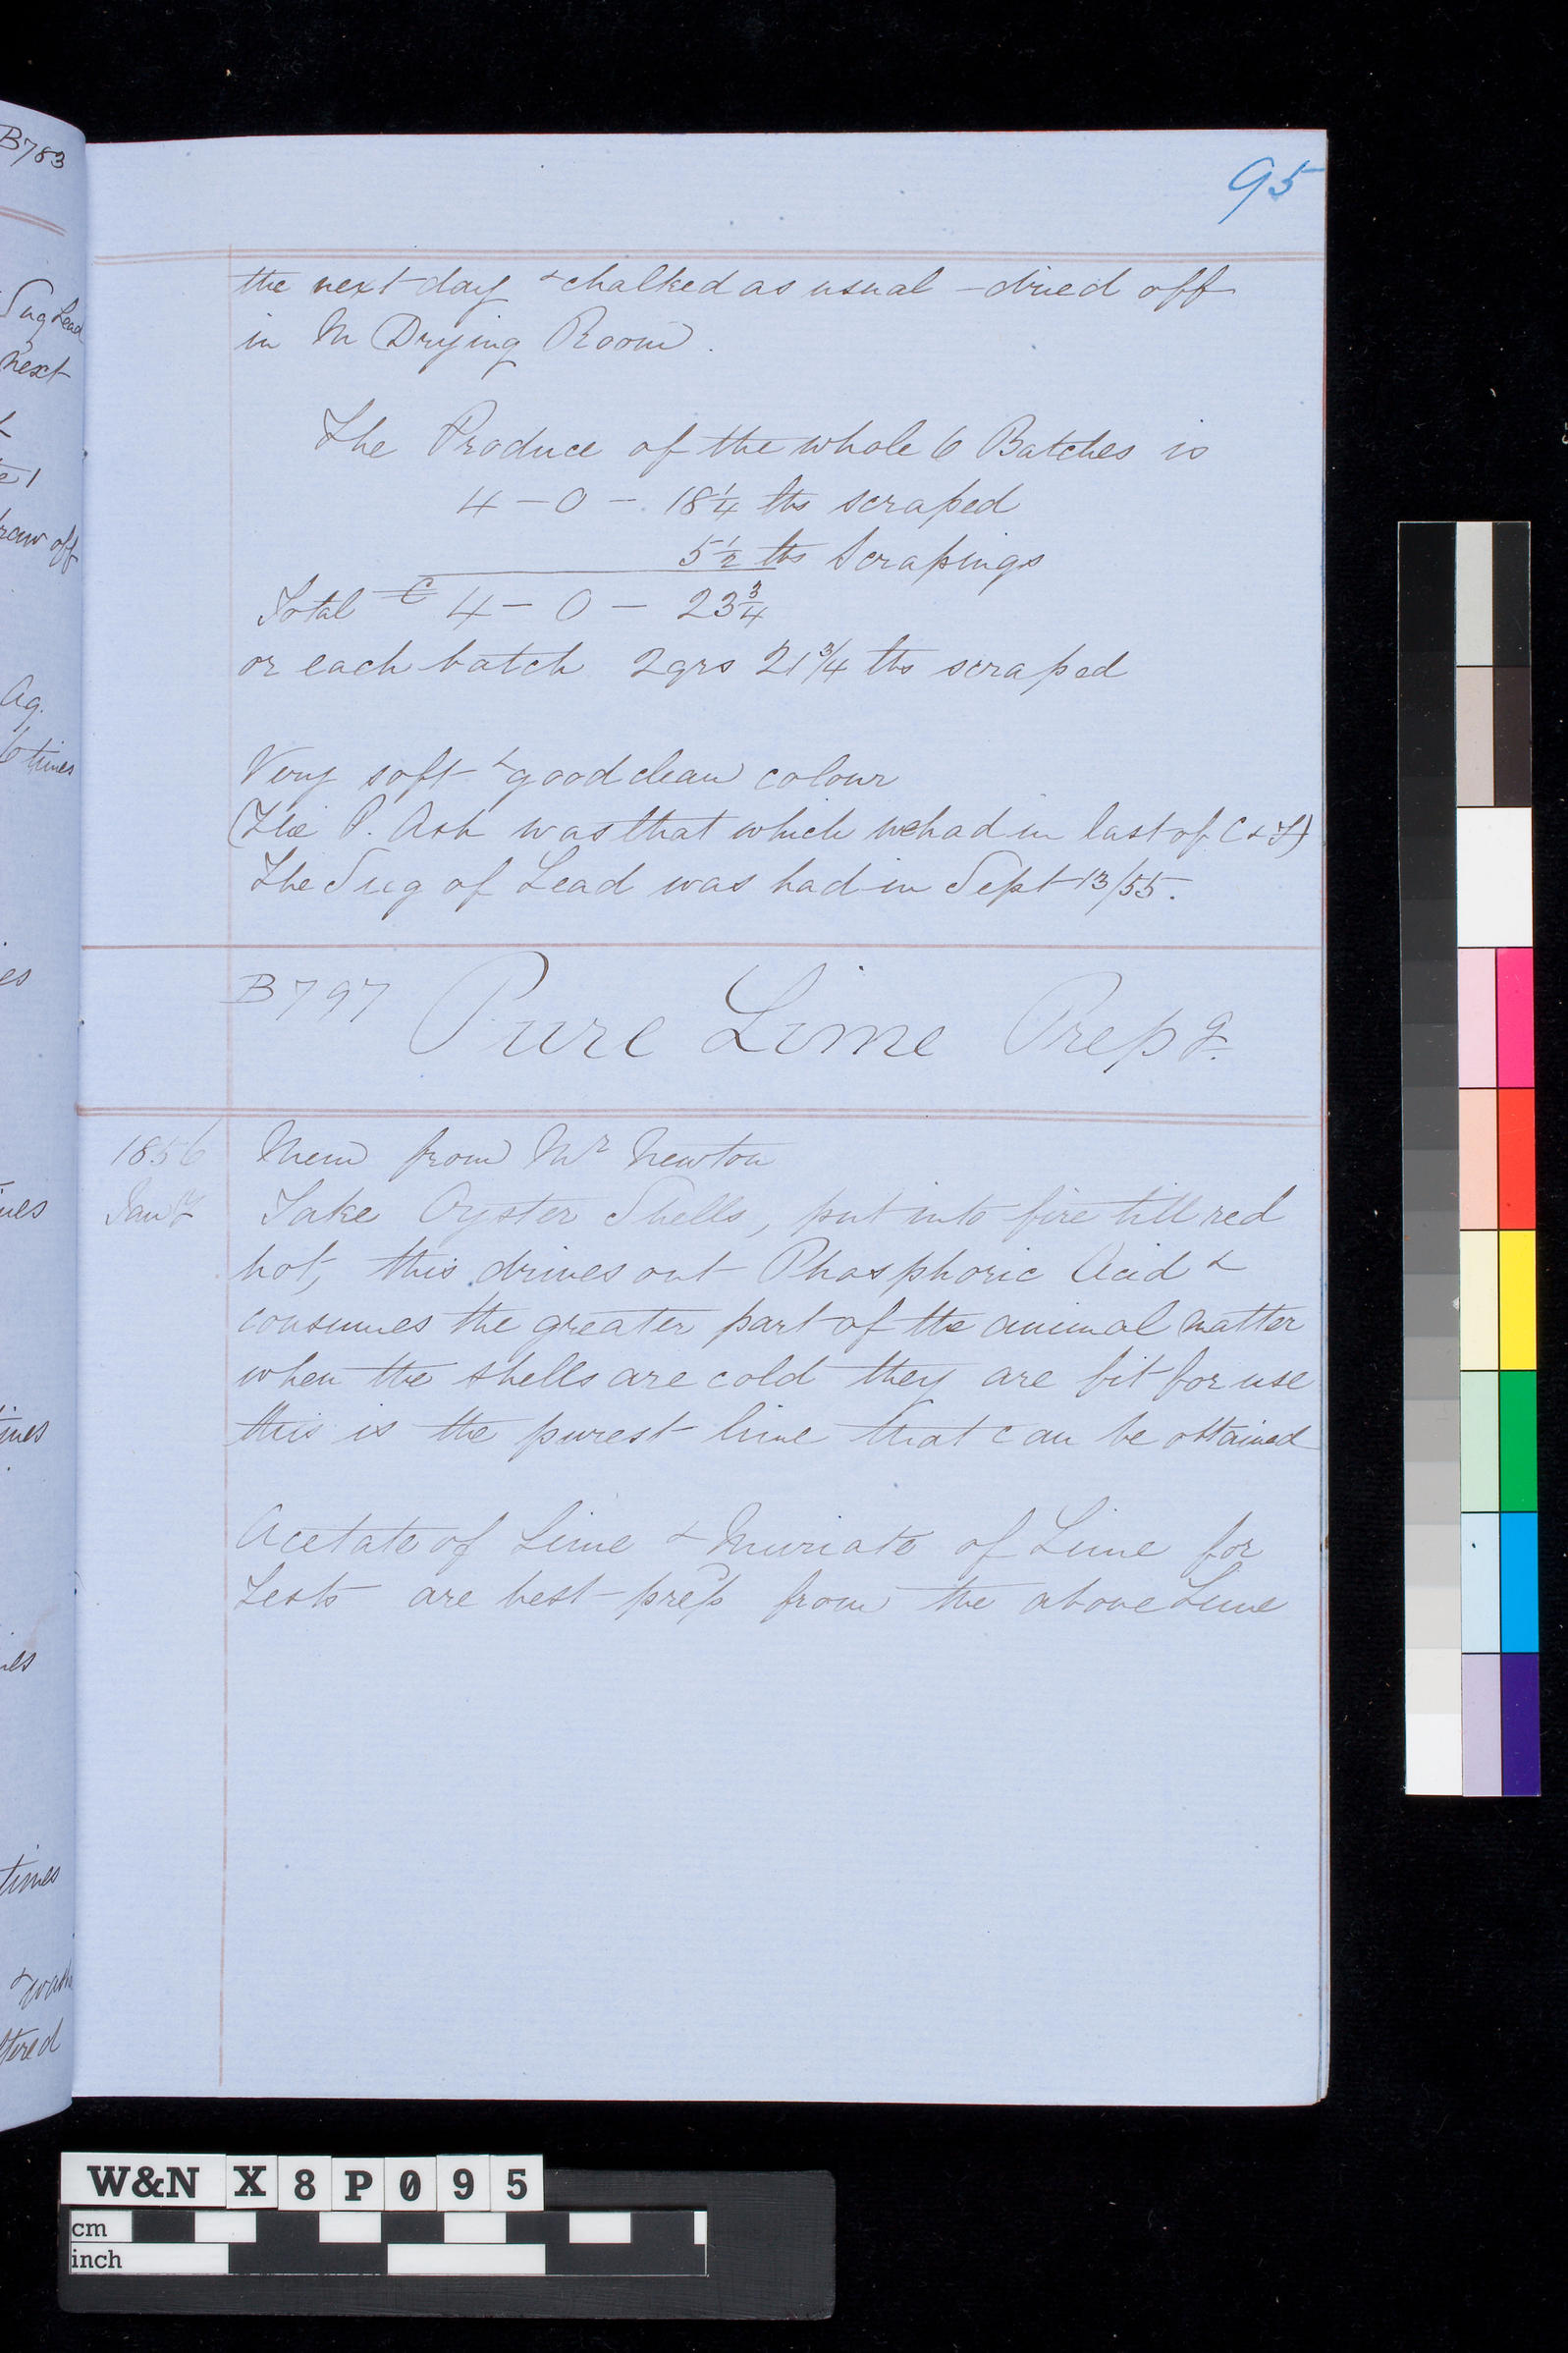 B783
95
Sug Lead
next
raw off
Ag.
6 times
times
& wash
the next day & chalked as usual - dried off
in M Drying Room.
The Produce of the whole 6 Batches is
4 - 0 - 18 1/4 lbs scraped
5 1/2 lbs Scrapings
Total C 4 - 0 - 23 3/4
or each batch 2 qrs 21 3/4 lbs scraped
Very soft & good clean colour
(The P. Ash was that which we had in last of C & T)
The Sug of Lead was had in Sept 13/55.
B797 Pure Lime Prepg.
1856 Mem from Mr Newton
Jan Take Oyster Shells, put into fire till red
hot, this drives out Phosphoric Acid &
consumes the greater part of the animal matter
when the shells are cold they are fit for use
this is the purest lime that can be obtained
Acetate of Lime & Muriate of Lime for
Tests are best prep from the above Lime
W&N X8P095
cm
inch